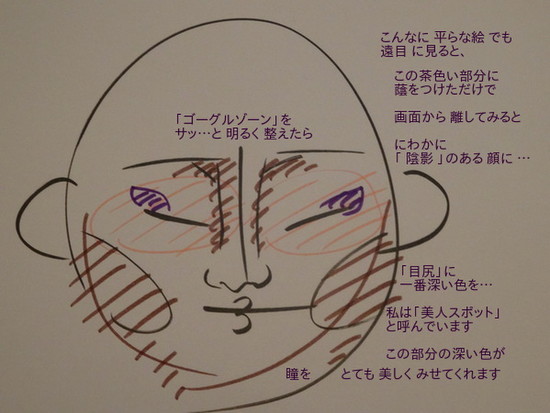 こんなに 平らな絵 でも
遠目 に見ると、
この茶色い部分に
蔭をつけただけで
画面から 離してみると
にわかに
「 陰影 」のある 顔に …
「ゴーグルゾーン」を
サッ…と 明るく 整えたら
「目尻」に
一番深い色を…
私は「美人スポット」
と呼んでいます
この部分の深い色が
瞳を とても 美しく みせてくれます